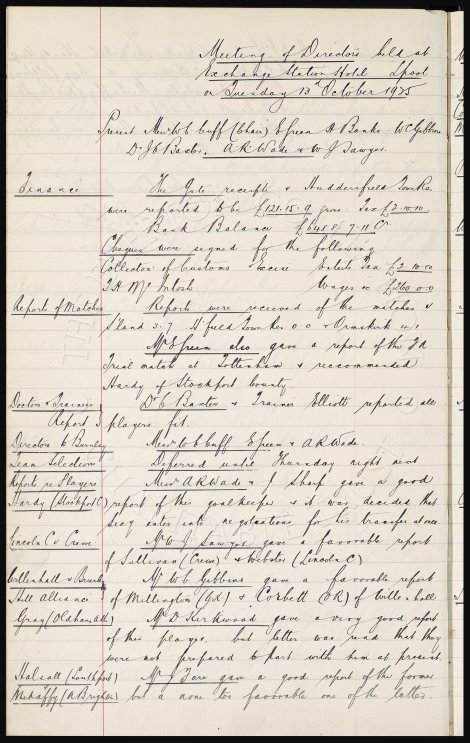 Meeting of Directors held at
Exchange Station Hotel Lpool
on Tuesday 13th October 1925
Present Messrs W C Cuff (Chair) E Green A Banks W C Gibbins
Dr J C Baxter. A R Wade & W J Sawyer.
Finance The Gate receipts v Huddersfield Town Res
were reported to be £121.15.9 gross Tax £2.10.10
Bank Balance £6488.7.11 Cr
Cheques were signed for the following
Collector of Customs & Excise Enterts Tax £2.10.10
T H McIntosh Wages &c £260.0.0
Reports of Matches Reports were received of the matches v
S'land 3.7 H'field Town Res 0 0 & Ormskirk
Mr E Green also gave a report of the FA
Trial match at Tottenham & recommended
Hardy of Stockport County
Doctor & Trainers Dr C Baxter & Trainer Elliott reported all
Report players fit.
Directors to Burnley Messrs W C Cuff E Green & A R Wade
Team Selection Deferred until Thursday night next
Reports re Players Messrs A R Wade & J Sharp gave a good
Hardy (Stockport C) report of this goalkeeper & it was decided that
Secy enter into negotiations for his transfer at once.
Lincoln C v Crewe Mr W J Sawyer gave a favorable report
of Sullivan (Crewe) & Webster (Lincoln C)
Willenhall v Burnley Mr W C Gibbins gave a favorable report
Hill Alliance of Millington (GK) & Corbett (OR) of Willenhall
Gray (Oldham Ath) Mr D Kirkwood gave a very good report
of this player, but letter was read that they
were not prepared to part with him at present.
Halsall (Southport) Mr J Fare gave a good report of the former
Mehaffy (N Brighton) but a none too favorable one of the latter.